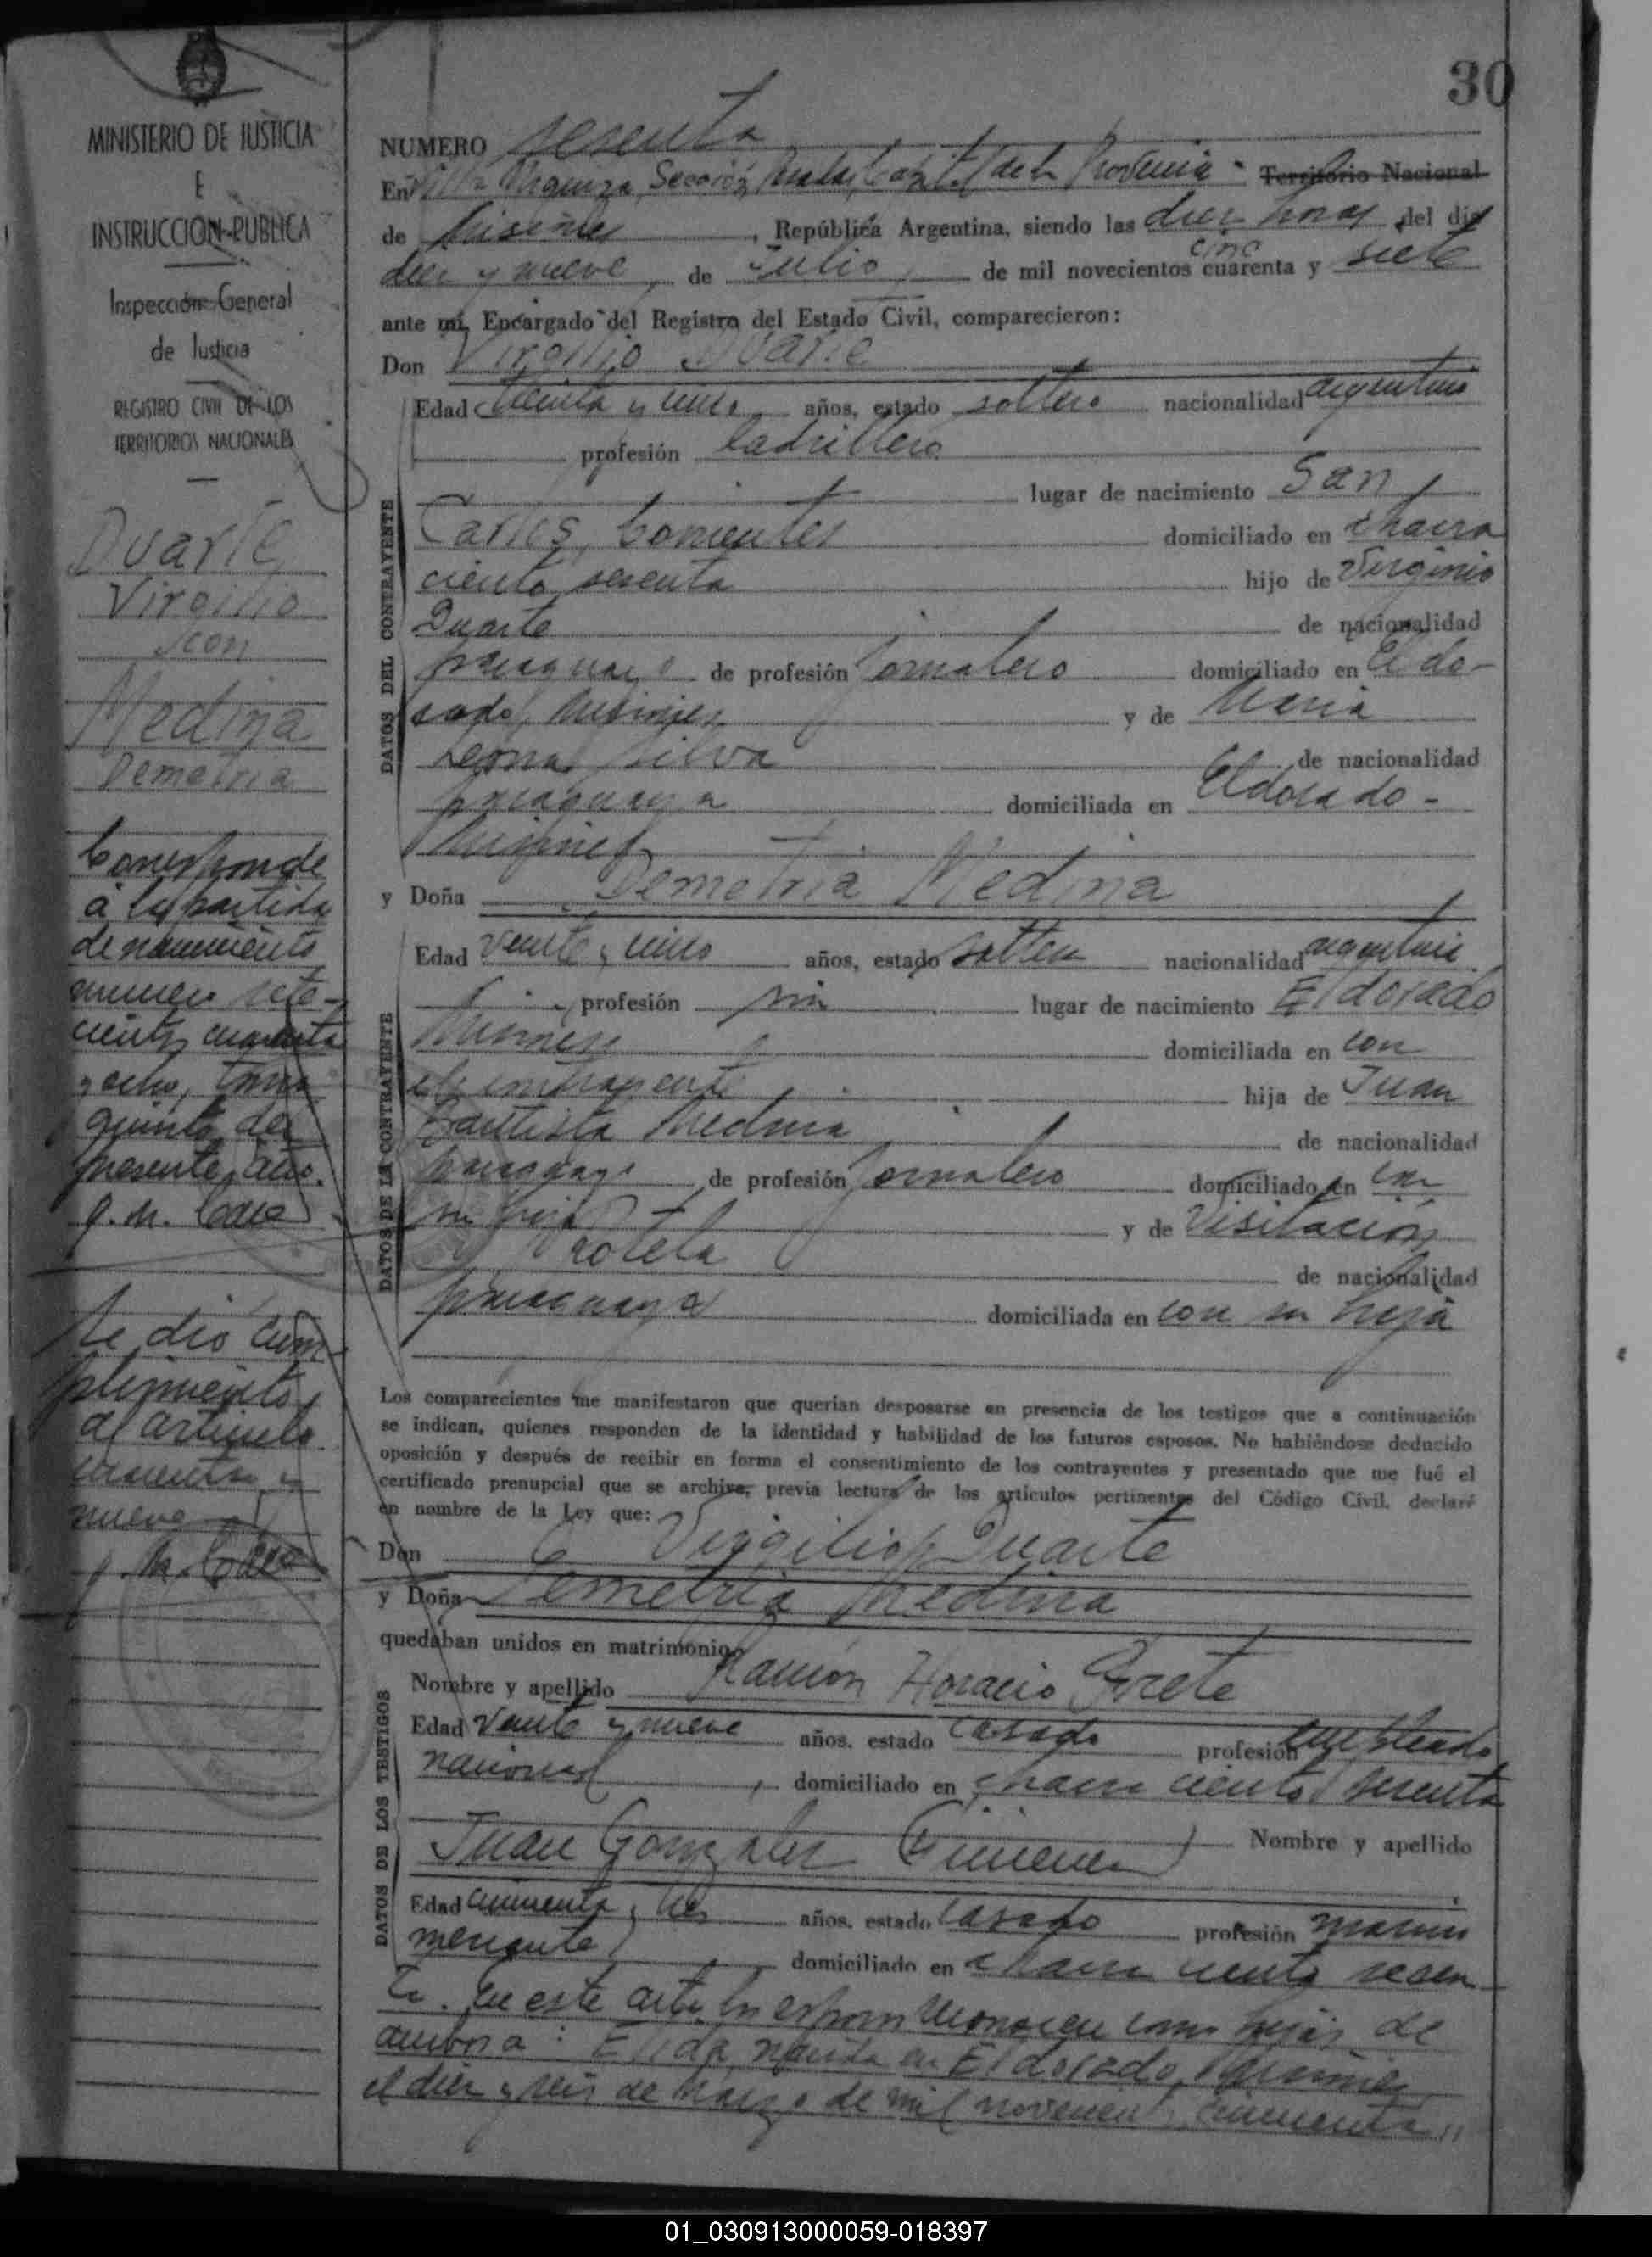 30
MINISTERIO DE JUSTICIA
E
INSTRUCCION PUBLICA
Inspección General
de Justicia
REGISTRO CIVIL DE LOS
TERRITORIOS NACIONALES
Duarte
Virgilio
con
Medina
Demetria
Corresponde
a la partida
de nacimiento
numero sete-
cientos cuarenta
y ocho, tomo
quinto del
presente año.
Se dió cum-
plimiento
al artículo
cincuenta y
nueve
NUMERO sesenta
En Villa Urquiza, Sección Posadas, Capital de la Provincia - Territorio Nacional
de Misiones, República Argentina, siendo las diez horas del día
diez y nueve, de Julio, de mil novecientos cinc cuarenta y siete
ante mí, Encargado del Registro del Estado Civil, comparecieron:
Don Virgilio Duarte
DATOS DEL CONTRAYENTE
Edad treinta y cinco años, estado soltero nacionalidad argentino
profesión ladrillero
lugar de nacimiento San
Carlos, Corrientes domiciliado en chacra
ciento sesenta hijo de Virginio
Duarte de nacionalidad
paraguayo de profesión Jornalero domiciliado en Eldo-
rado, Misiones y de María
Silva de nacionalidad
paraguaya domiciliada en Eldorado -
Misiones
y Doña Demetria Medina
DATOS DE LA CONTRAYENTE
Edad veinte y cinco años, estado soltera nacionalidad argentina
profesión sin lugar de nacimiento Eldorado
Misiones domiciliada en con
el contrayente hija de Juan
Bautista Medina de nacionalidad
paraguayo de profesión Jornalero domiciliado en con
su hija y de Visitación
Rotela de nacionalidad
paraguaya domiciliada en con su hija
Los comparecientes me manifestaron que querían desposarse en presencia de los testigos que a continuación
se indican, quienes responden de la identidad y habilidad de los futuros esposos. No habiéndose deducido
oposición y después de recibir en forma el consentimiento de los contrayentes y presentado que me fué el
certificado prenupcial que se archiva, previa lectura de los artículos pertinentes del Código Civil, declaré
en nombre de la Ley que:
Don Virgilio Duarte
y Doña Demetria Medina
quedaban unidos en matrimonio
DATOS DE LOS TESTIGOS
Nombre y apellido Ramón Horacio
Edad veinte y nueve años, estado casado profesión empleado
nacional, domiciliado en chacra ciento sesenta
Juan Gonzalez Gimenez Nombre y apellido
Edad cincuenta y tres años, estado casado profesión marino
mercante domiciliado en chacra ciento sesen
ta. En este acto los esposos reconocen como hija de
ambos a: Elida, nacida en Eldorado, Misiones,
el diez y seis de Marzo de mil novecientos cincuenta
01_030913000059-018397